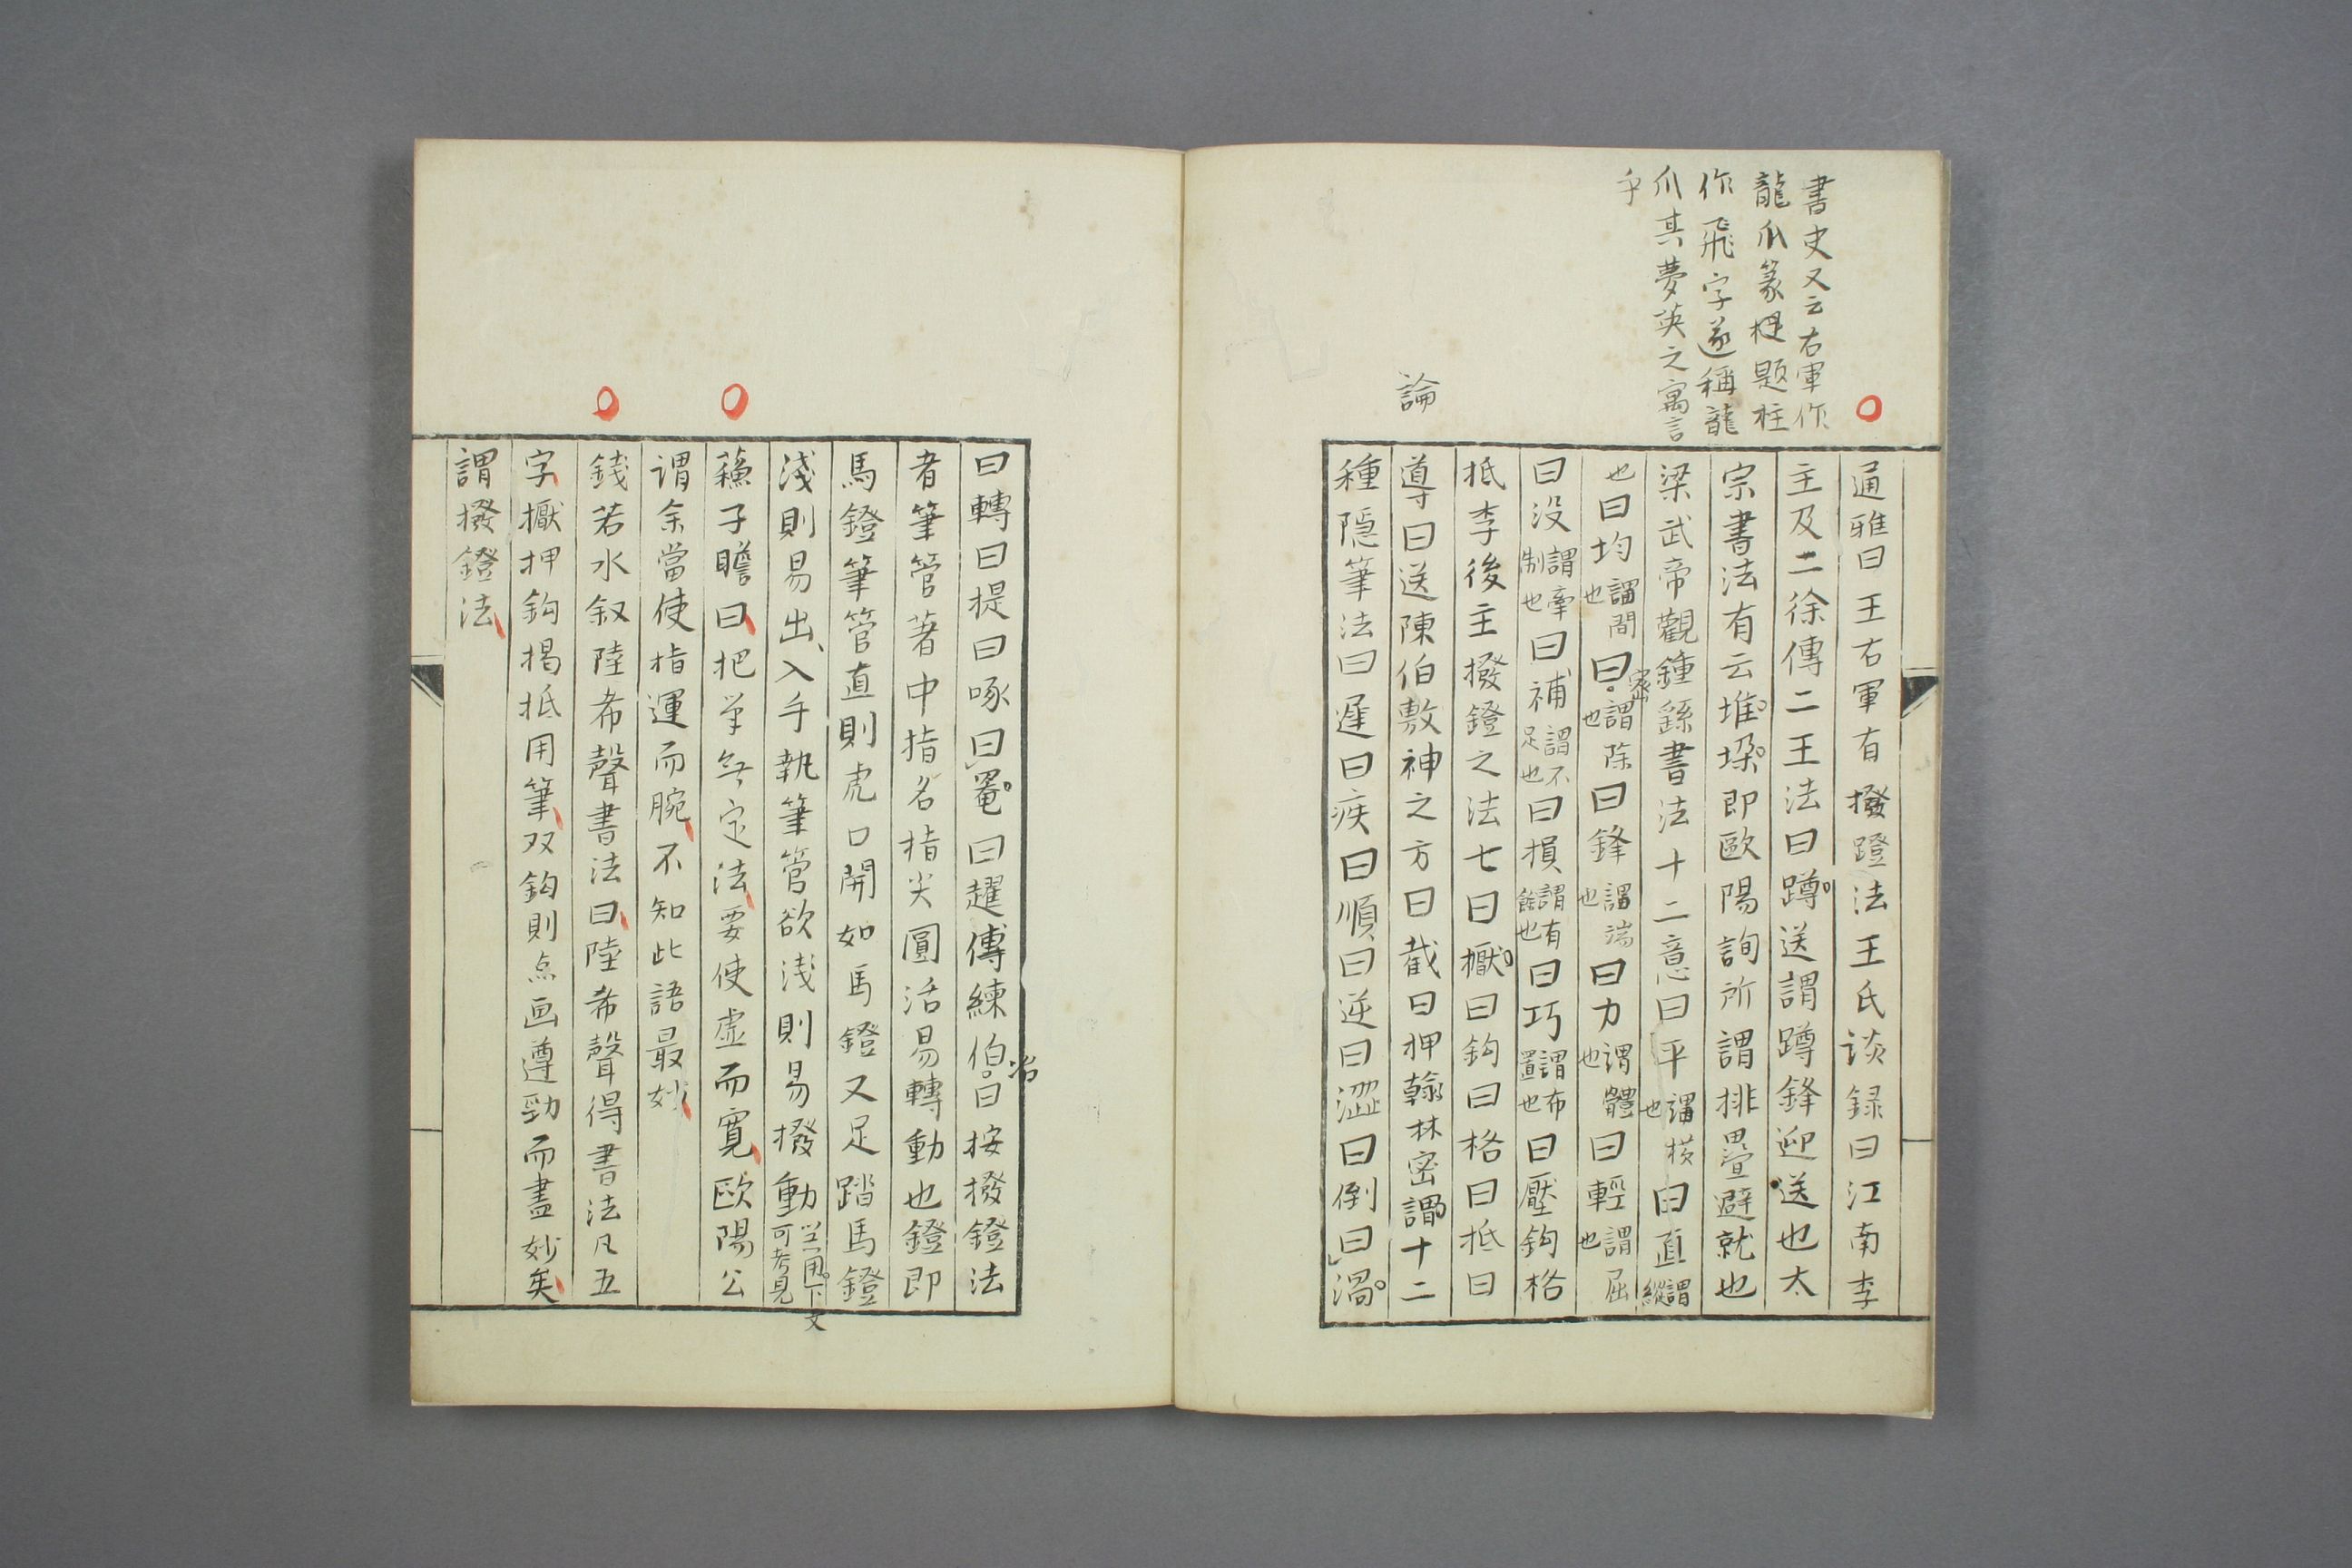 書史又云右軍作
龍爪篆 題柱
作飛字遂稱龍
爪其夢英之寓言
乎
論
通雅曰王右軍有撥蹬法王氏談録曰江南李
主及二徐傳二王法曰蹲送謂蹲鋒迎送也太
宗書法有云堆垜即歐陽詢所謂排疊避就也
梁武帝觀鍾繇書法十二意曰平謂橫也曰直謂縱
也曰均謂間也曰密謂除也曰鋒謂端也曰力謂體也曰輕謂屈也
曰没謂牽制也曰補謂不足也曰損謂有餘也曰巧謂布置也曰壓鈎格
抵李後主撥鐙之法七曰擫曰鈎曰格曰抵曰
導曰送陳伯敷神之方曰截曰押翰林密謂十二
種隠筆法曰遲曰疾曰順曰逆曰澀曰倒曰渦
曰轉曰提曰啄曰罨曰趯傅練伯曰按撥鐙法
者筆管著中指名指尖圓活易轉動也鐙即
馬鐙筆管直則虎口開如馬鐙又足踏馬鐙
淺則易出入手執筆管欲浅則易撥動 用下文可考見
蘓子瞻曰把筆無定法要使虚而寬歐陽公
谓余當使指運而腕不知此語最妙
錢若水叙陸希聲書法曰陸希聲得書法凡五
字擫押鈎揭抵用筆双鈎則点画遵勁而盡妙矣
謂撥鐙法